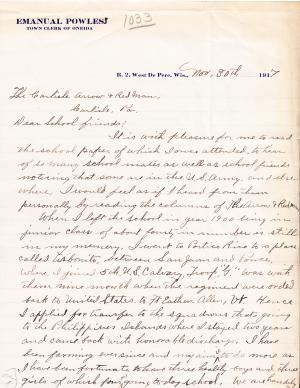 EMANUAL POWLESS
TOWN CLERK OF ONEIDA
1033
R. 2, West De Pere, Wis., Nov. 30th 1917
The Carlisle Arrow & Red Man,
Carlisle, Pa.
Dear School friends;
It is with pleasure for me to read
the school paper of which I once attended, to hear
of so many school mates as well as school friends
noticing that some are in the U.S. Army, and else-
where I would feel as if I heard from them
personally by reading the columns of The Arrow & Red Man
When I left the school in year 1900 being in
junior class of about forty in number is still
in my memory. I went to Portico Rico to a place
called Aibonito, between San Juan and Ponce,
where I joined 5th U.S. Calvary, Troop "G" was with
them nine month when the regiment were ordered
back to United States to Ft Eathen Allen, Vt. Hence
I applied for transfer to the squadron that going
to the Philippines Islands where I stayed two years
and came back with honorable discharge. I have
been farming ever since and to do more as
I have been fortunate to have three healthy boys and three
girls of which four going to day school. We are